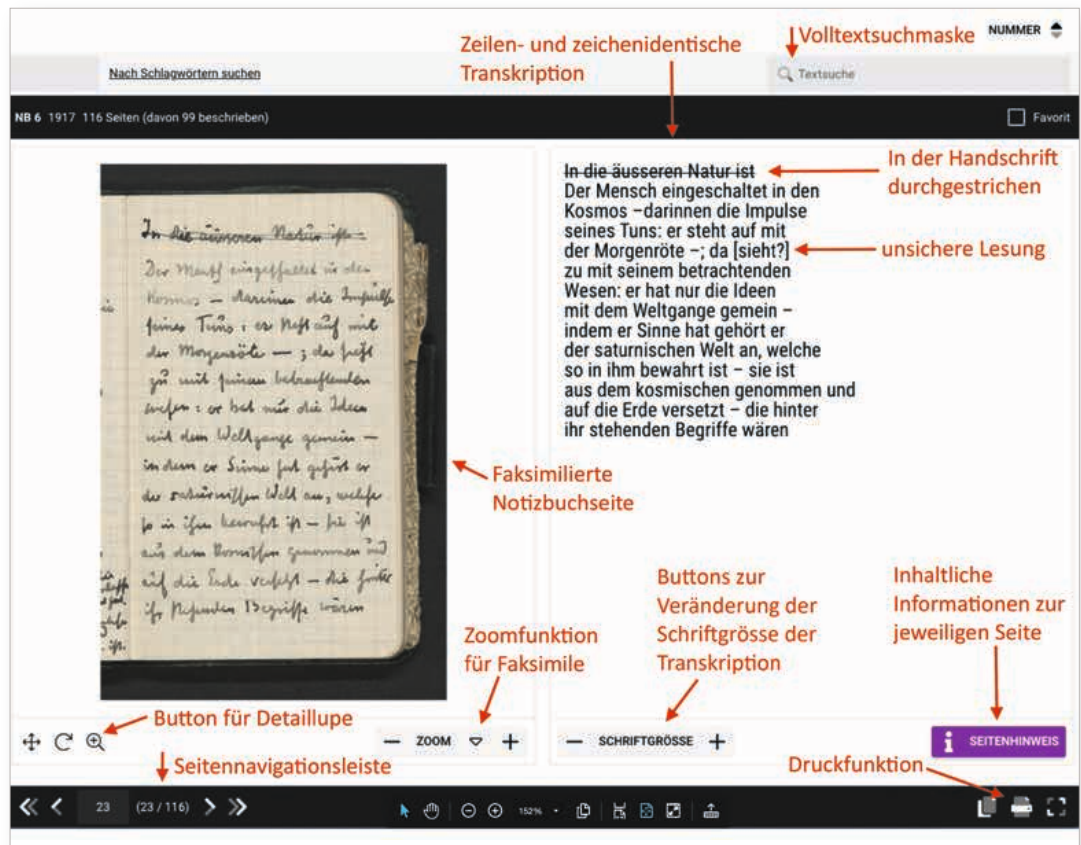 NUMMER
Zeilen- und zeichenidentische
Transkription
Volltextsuchmaske
Nach Schlagwörtern suchen
Textsuche
NB 6 1917 116 Seiten (davon 99 beschrieben)
Favorit
In die äusseren Natur ist
Der Mensch eingeschaltet in den
Kosmos – darinnen die Impulse
seines Tuns : er steht auf mit
der Morgenröte – ; da sieht
zu mit seinem betrachtenden
Wesen : er hat nur die Ideen
mit dem Weltgange gemein –
indem er Sinne hat gehört er
der saturnischen Welt an, welche
so in ihm bewahrt ist – sie ist
aus dem kosmischen genommen und
auf die Erde versetzt – die hinter
ihr stehenden Begriffe wären
In die äusseren Natur ist
Der Mensch eingeschaltet in den
Kosmos –darinnen die Impulse
seines Tuns: er steht auf mit
der Morgenröte –; da [sieht?]
zu mit seinem betrachtenden
Wesen: er hat nur die Ideen
mit dem Weltgange gemein –
indem er Sinne hat gehört er
der saturnischen Welt an, welche
so in ihm bewahrt ist – sie ist
aus dem kosmischen genommen und
auf die Erde versetzt – die hinter
ihr stehenden Begriffe wären
In der Handschrift
durchgestrichen
unsichere Lesung
Faksimilierte
Notizbuchseite
Zoomfunktion
für Faksimile
Buttons zur
Veränderung der
Schriftgrösse der
Transkription
Inhaltliche
Informationen zur
jeweiligen Seite
Button für Detaillupe
— ZOOM +
— SCHRIFTGRÖSSE +
i SEITENHINWEIS
Seitennavigationsleiste
Druckfunktion
23 (23 / 116)
152%